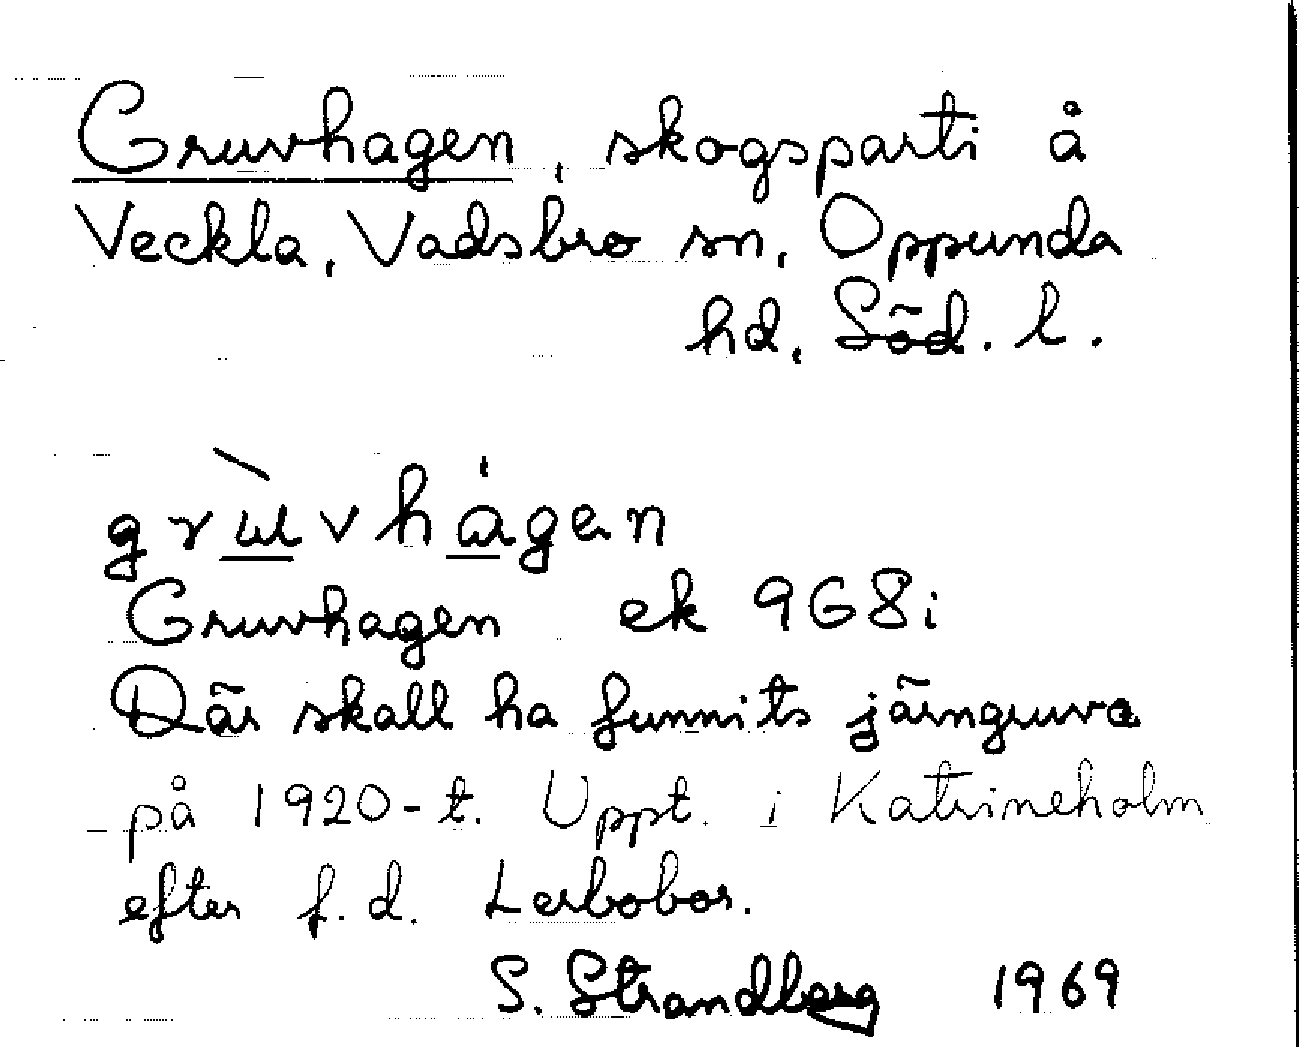 Gruvhagen, skogsparti å
Veckla, Vadsbro sn, Oppunda
hd, Söd. l.
grùvhágen
Gruvhagen ek 968i
Där skall ha funnits järngruva
på 1920-t. Uppt. i Katrineholm
efter f.d. Lerbobor.
S. Strandberg 1969